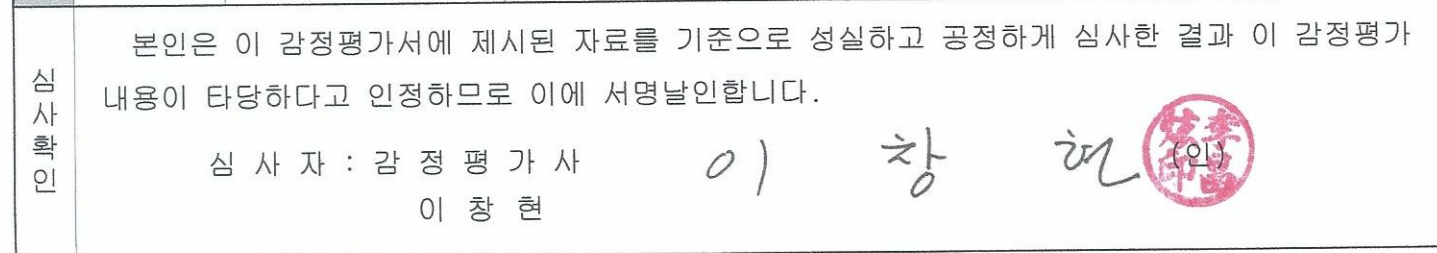 심사확인
본인은 이 감정평가서에 제시된 자료를 기준으로 성실하고 공정하게 심사한 결과 이 감정평가
내용이 타당하다고 인정하므로 이에 서명날인합니다.
심 사 자 : 감 정 평 가 사 이 창 현 (인)
이 창 현